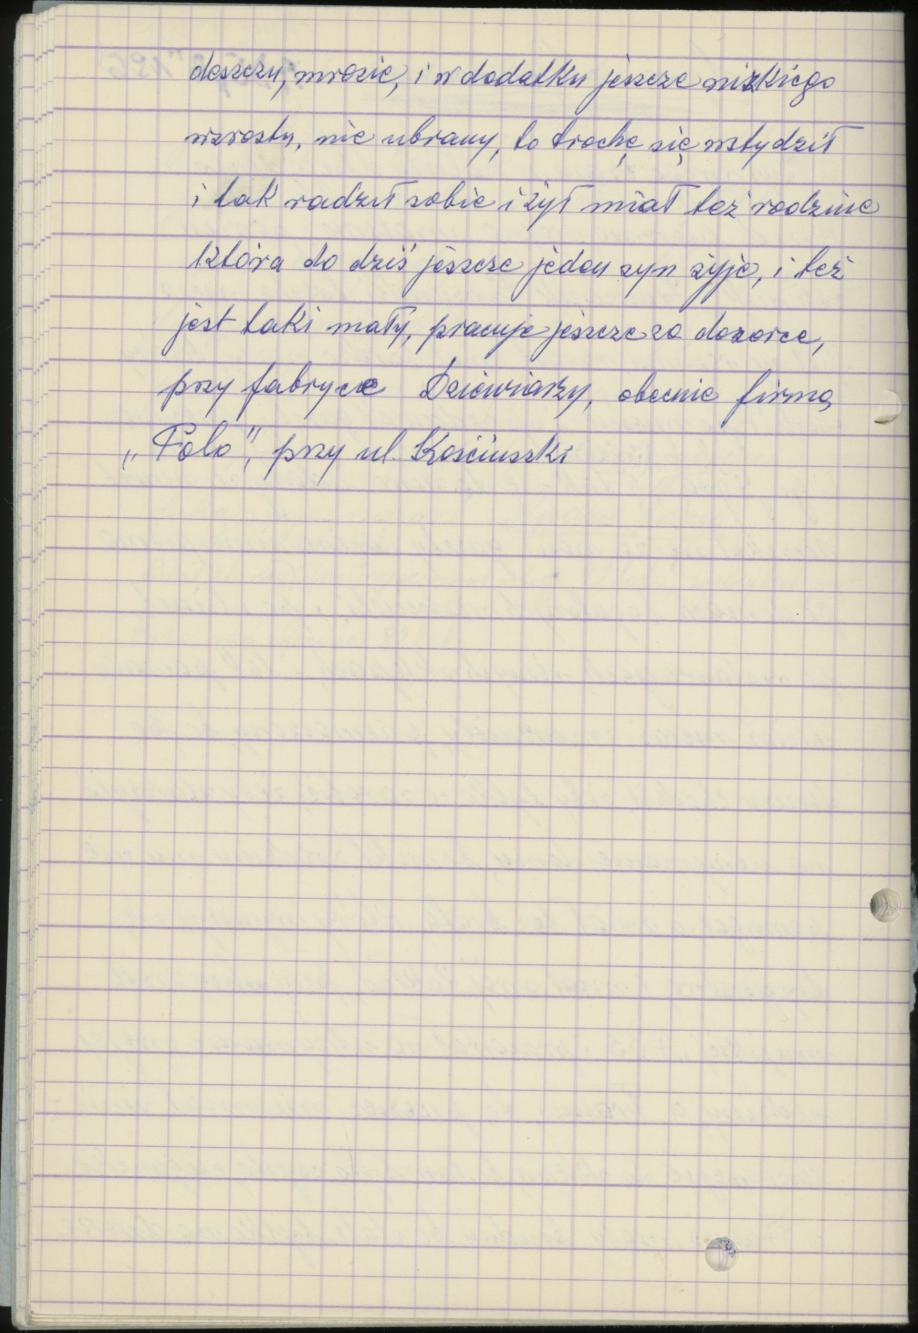 deszczu, mrozie, i w dodatku jeszcze nizkiego
wzrostu, nie ubrany, to trochę się wstydził
i tak radził sobie i żył miał też rodzine
która do dziś jeszcze jeden syn żyje, i też
jest taki mały, pracuje jeszcze za dozorce,
przy fabryce Dziewiarzy, obecnie firmą
„Folo", przy ul. Kościuszki